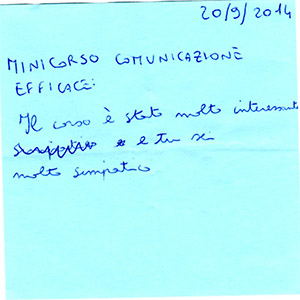 20/9/2014
MINICORSO COMUNICAZIONE
EFFICACE:
Il corso è stato molto interessante
e tu sei
molto simpatico